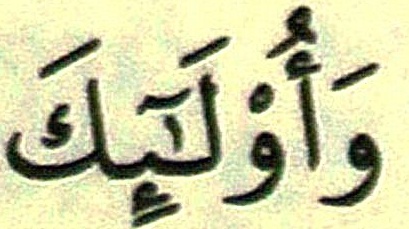 وَأُوْلَـٰٓئِكَ